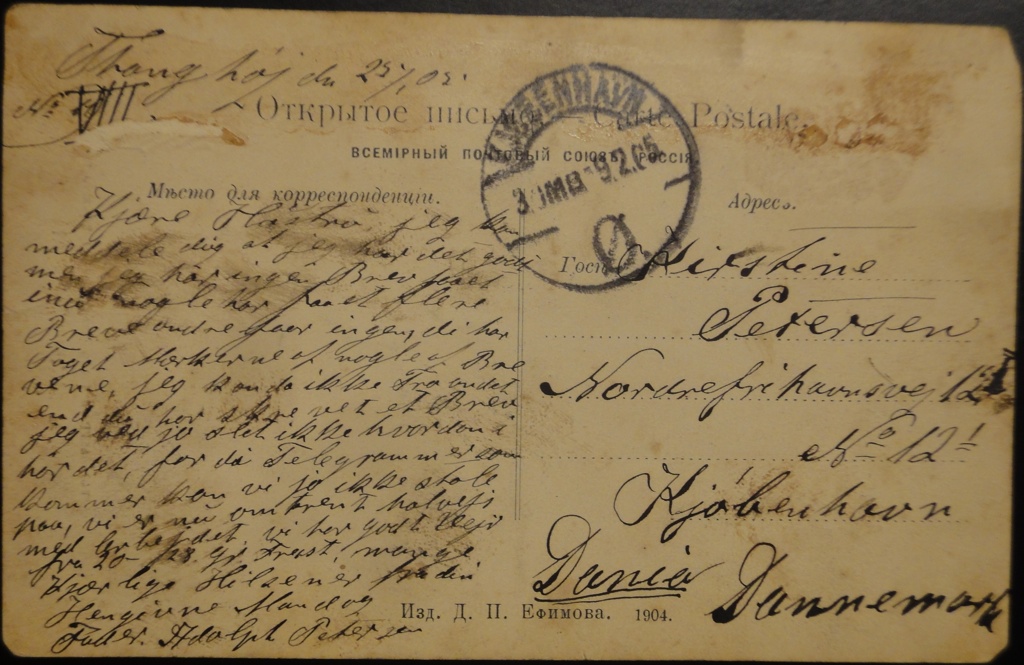 høj den 25/1, 05
No VIII.
Открытое письмо. — Carte Postale.
ВСЕМІРНЫЙ ПОЧТОВЫЙ СОЮЗЪ РОССІЯ
KJØBENHAVN
3.OMB 9.2.05
Мѣсто для корреспонденціи.
Адресъ.
Kjære Hustru jeg kan
meddele dig at jeg har det godt
men jeg har ingen Brev faaet
nogle har faaet flere
Breve andre faar ingen, di har
Taget Mærkerne af nogle af Bre
vene, jeg kan da ikke Tro andet
end du har skrevet et Brev
jeg ved jo slet ikke hvordan i
har det, for di Telegrammer som
kommer kan vi jo ikke stole
paa, vi er nu omtrent halvfj
med Arbejdet, vi har godt Vejr
fra 20- 28 gr Frost, mange
Kjærlige Hilsener fra din
Hengivne Mand og
Fader. Adolph Petersen
Kirstine
Petersen
Nordrefrihavnsvej 12
No 12
Kjøbenhavn
Dania
Dannemark
Изд. Д. П. Ефимова. 1904.